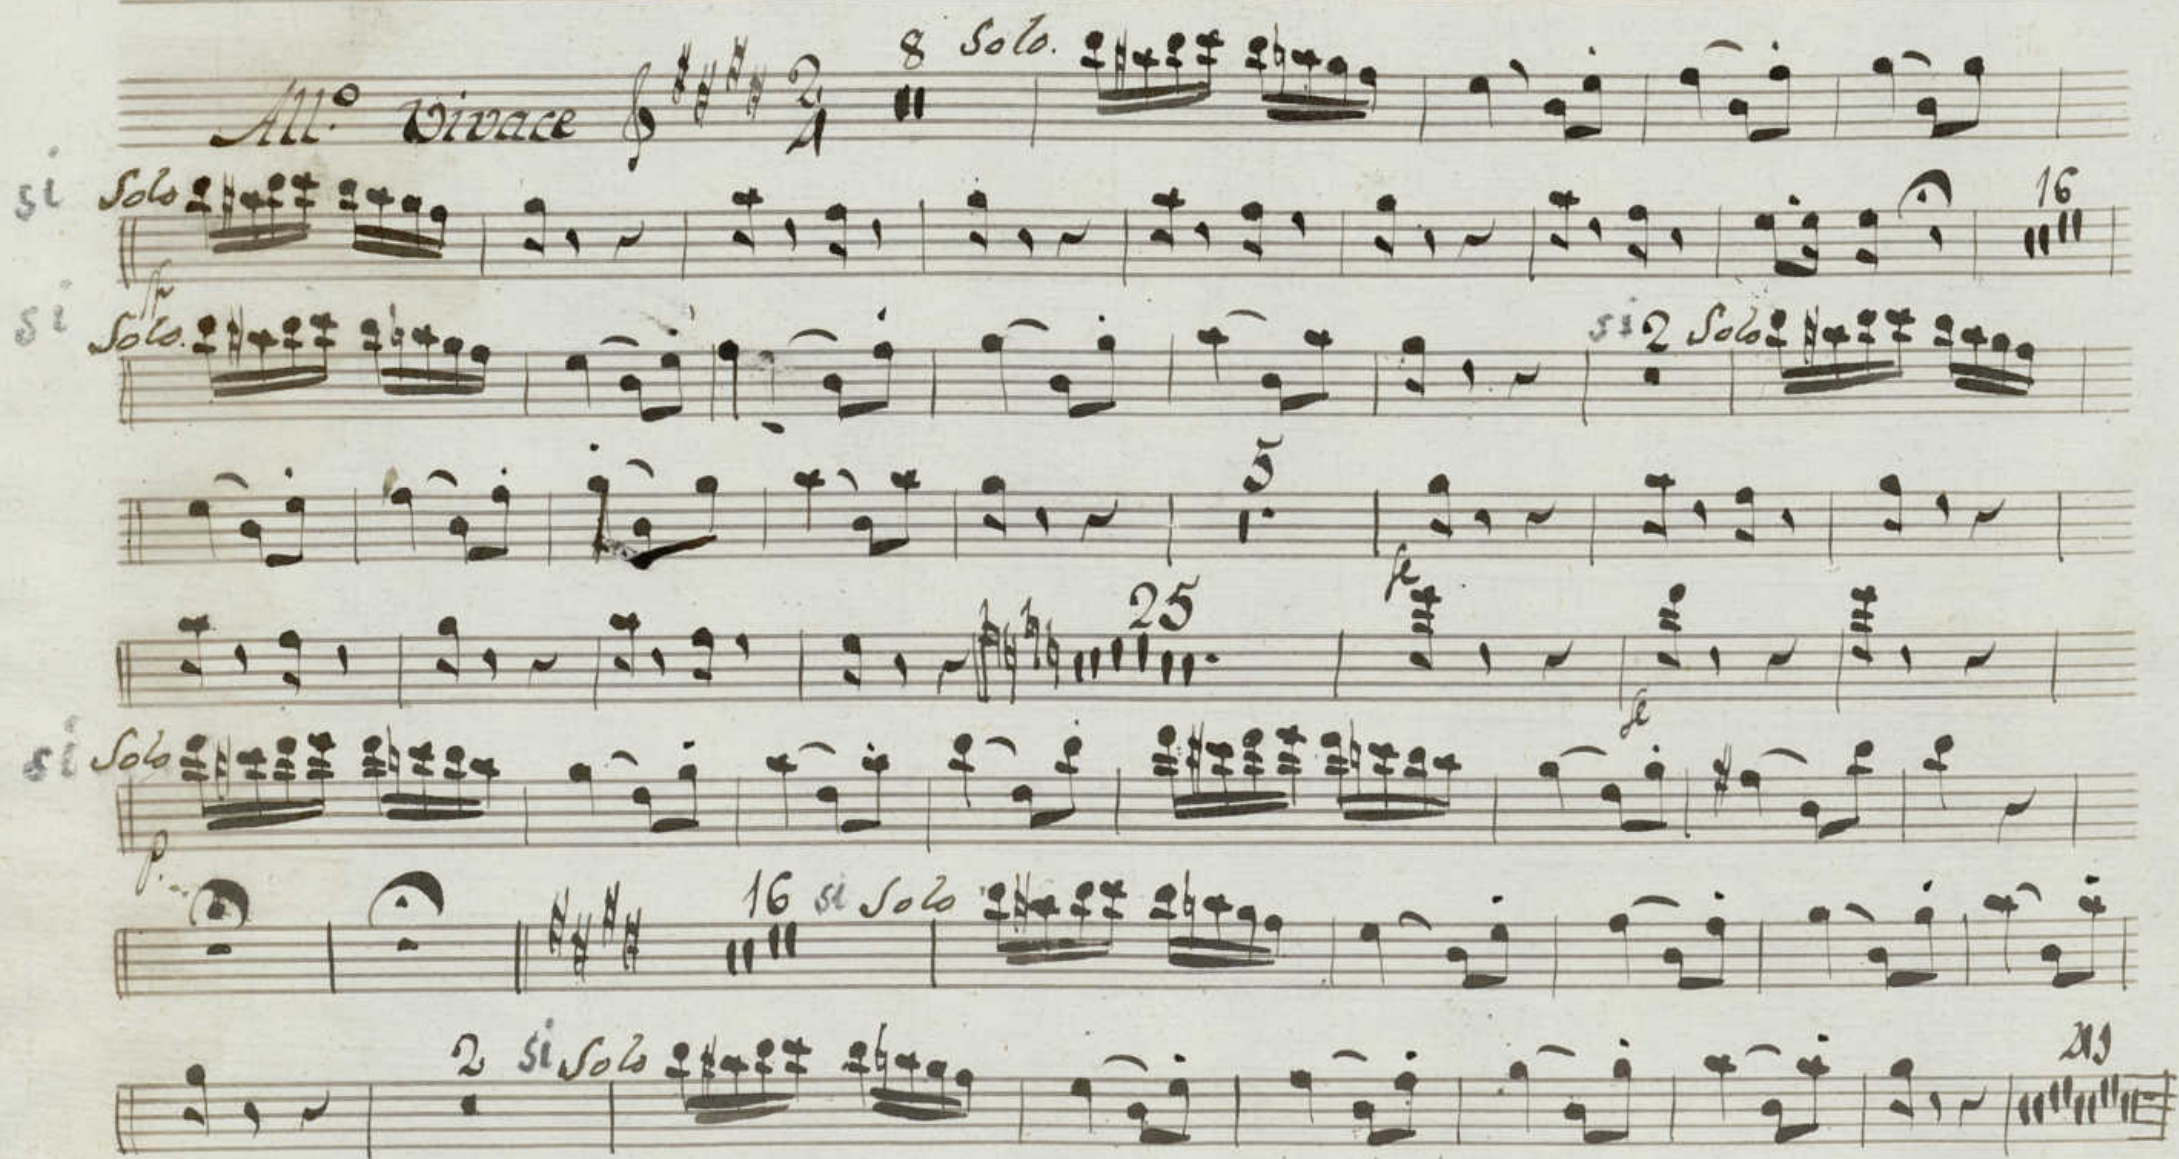 All.º Vivace 2/4 8 Solo.
si Solo 16
fp
si Solo. si 2 Solo
5
fe
25
fe
si Solo
p.
16 si Solo
2 si Solo